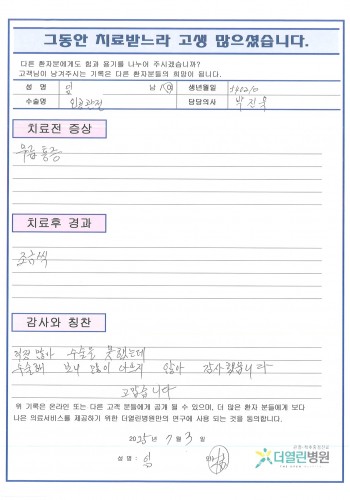 그동안 치료받느라 고생 많으셨습니다.
다른 환자분에게도 힘과 용기를 나누어 주시겠습니까?
고객님이 남겨주시는 기록은 다른 환자분들의 희망이 됩니다.
성 명 임 남 / 여 생년월일 590210
수술명 인공관절 담당의사 박진욱
치료전 증상
무릎통증
치료후 경과
조금씩
감사와 칭찬
걱정 많아 수술을 못했는데
수술해 보니 많이 아프지 않아 감사했습니다
고맙습니다
위 기록은 온라인 또는 다른 고객 분들에게 공개 될 수 있으며, 더 많은 환자 분들에게 보다
나은 의료서비스를 제공하기 위한 더열린병원만의 연구에 사용 되는 것을 동의합니다.
2025년 7월 3일
성 명 : 임
더열린병원